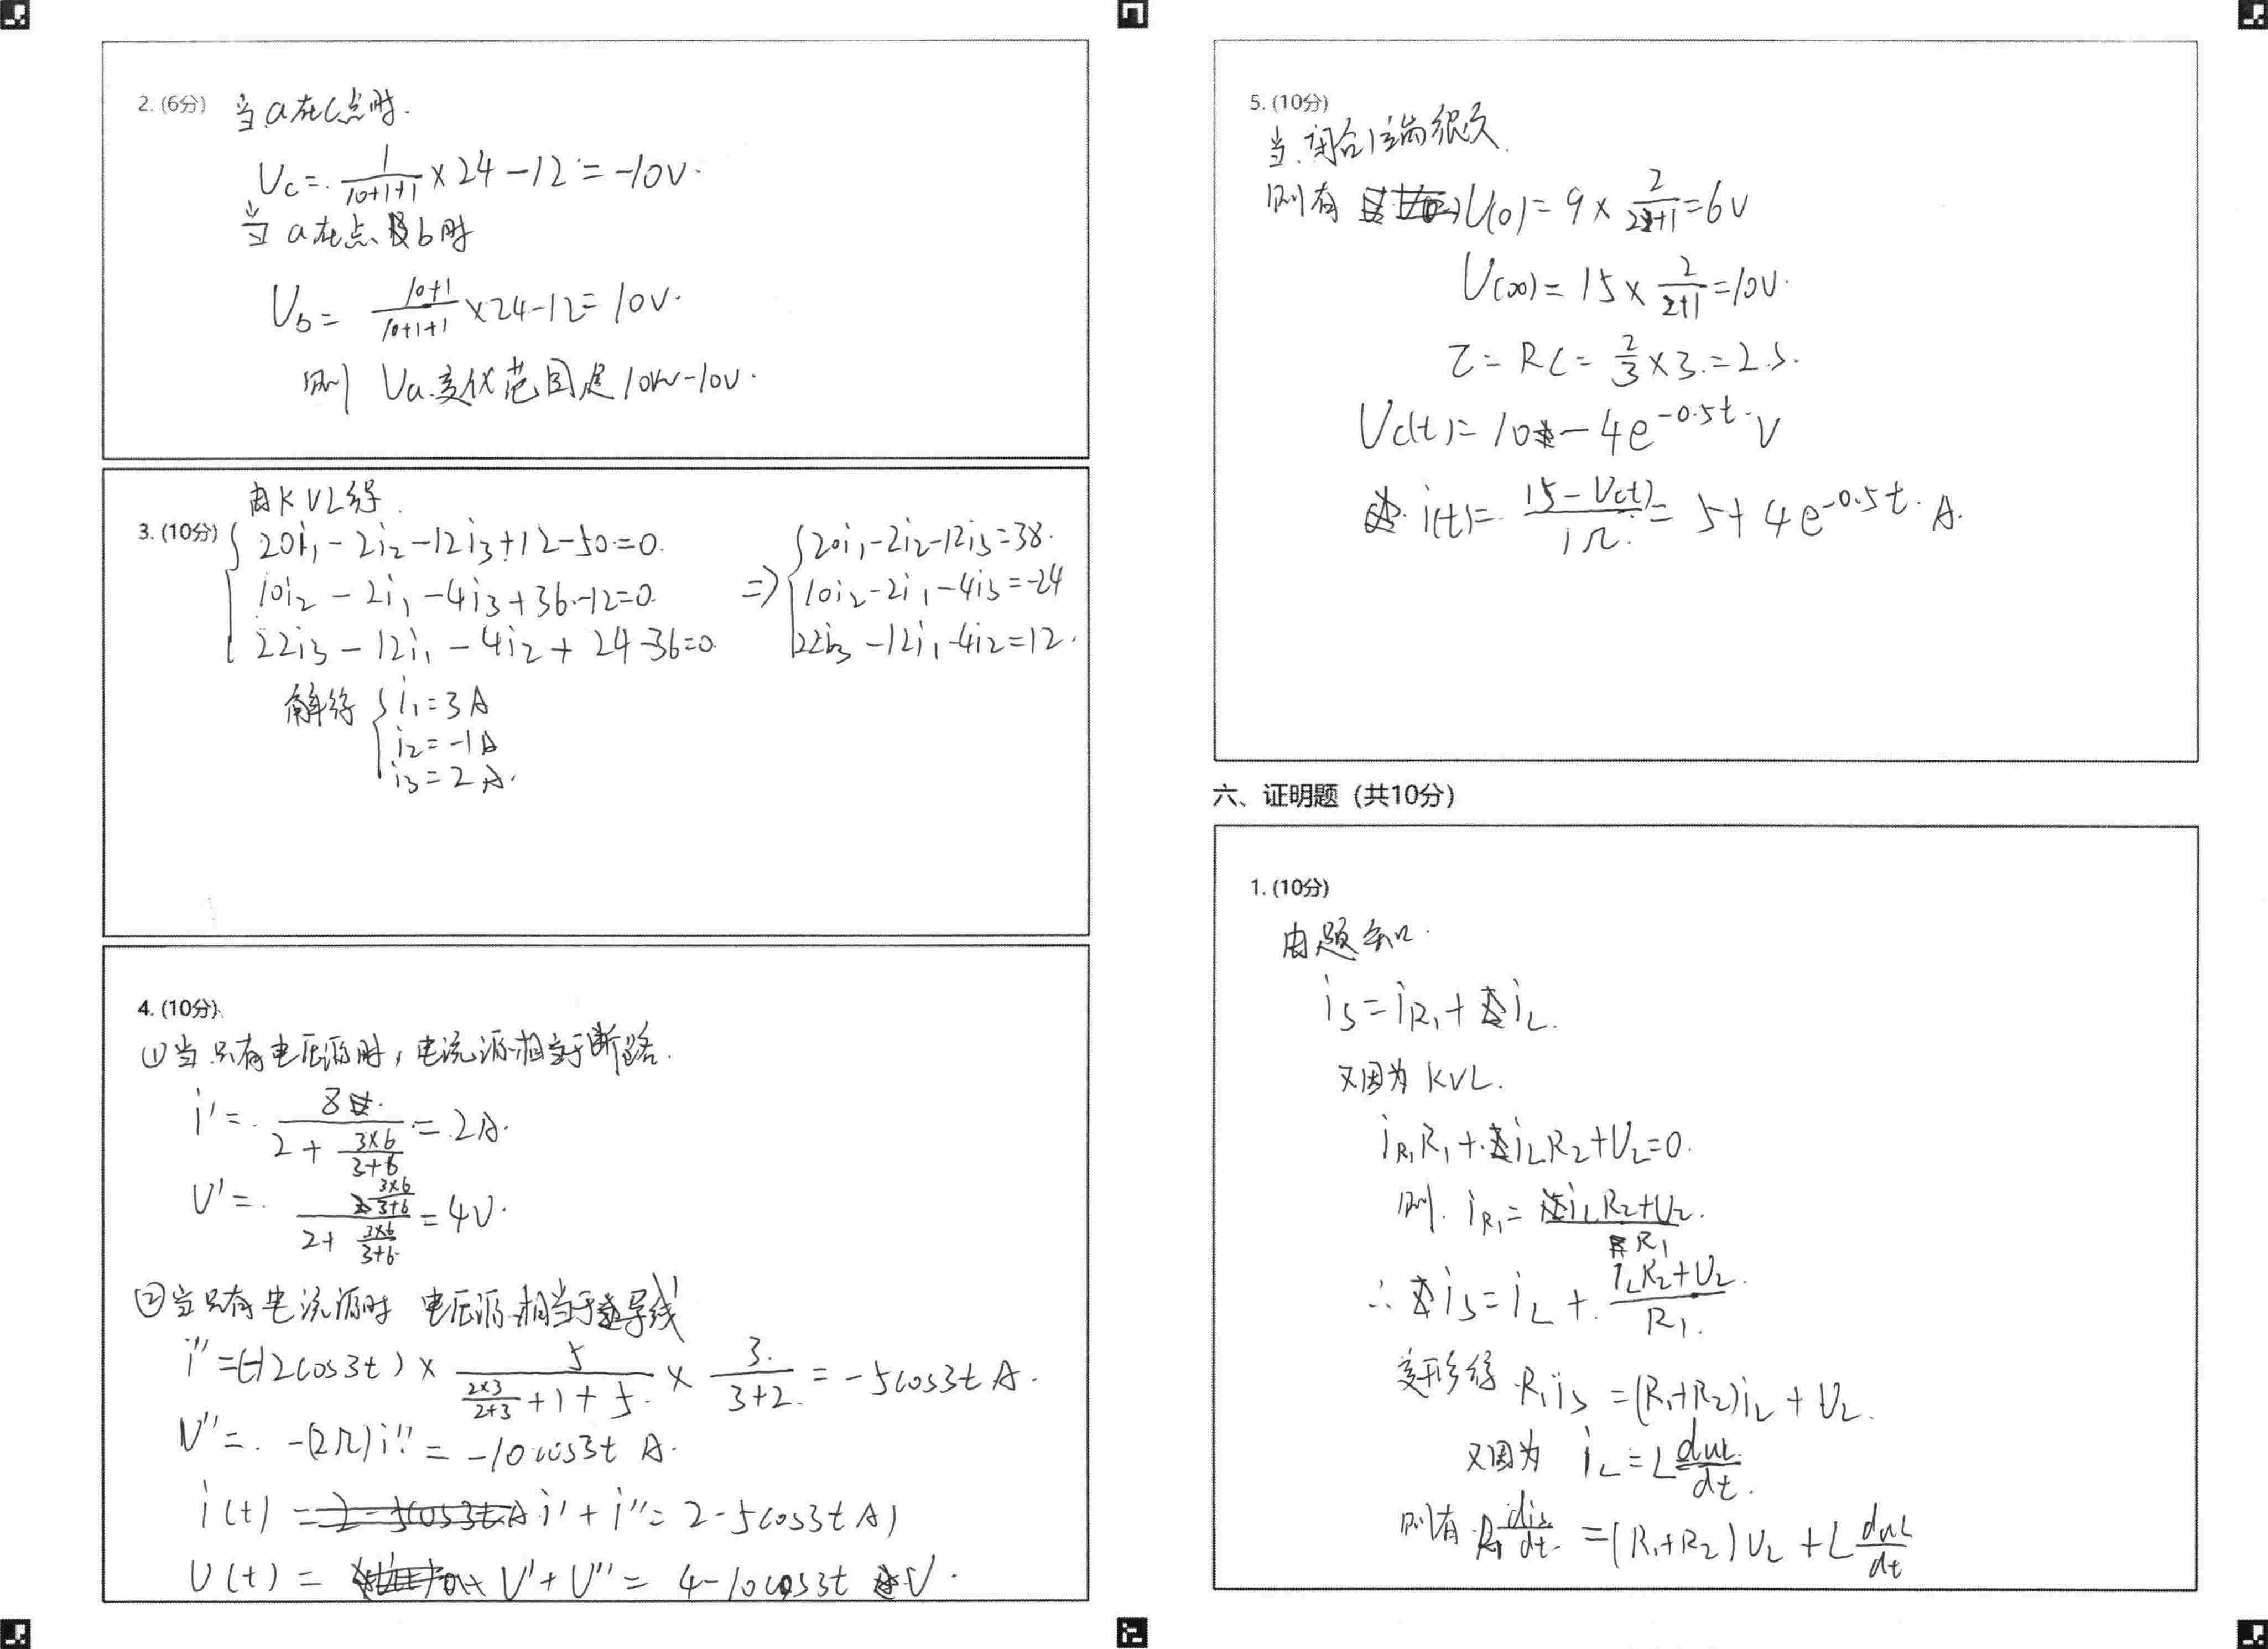 2. (6分) 当a在c点时.
Uc = 1/(10+1+1) × 24 - 12 = -10V.
当a在点b时
Ub = (10+1)/(10+1+1) × 24 - 12 = 10V.
则 Ua.变化范围是10V~-10V.
由KVL得.
3. (10分) { 20i₁ - 2i₂ - 12i₃ + 12 - 50 = 0. ⇒ { 20i₁ - 2i₂ - 12i₃ = 38.
10i₂ - 2i₁ - 4i₃ + 36 - 12 = 0. 10i₂ - 2i₁ - 4i₃ = -24
22i₃ - 12i₁ - 4i₂ + 24 - 36 = 0. 22i₃ - 12i₁ - 4i₂ = 12.
解得 { i₁ = 3A
i₂ = -1A
i₃ = 2A.
4. (10分)
①当只有电压源时，电流源相当于断路.
i' = 8/(2 + (3×6)/(3+6)) = 2A.
U' = ((3×6)/(3+6))/(2 + (3×6)/(3+6)) = 4V.
②当只有电流源时 电压源相当于导线
i'' = (-12cos3t) × 5/((2×3)/(2+3) + 1 + 5) × 3/(3+2) = -5cos3t A.
U'' = -(2Ω)i'' = -10cos3t A.
i(t) = i' + i'' = 2 - 5cos3t A)
U(t) = U' + U'' = 4 - 10cos3t V.
5. (10分)
当.闭合1端很久.
则有 U(0) = 9 × 2/(2+1) = 6V
U(∞) = 15 × 2/(2+1) = 10V.
τ = RC = 2/3 × 3 = 2s.
Uc(t) = 10 - 4e^(-0.5t) V
i(t) = (15 - Uc(t))/1Ω = 5 + 4e^(-0.5t) A.
六、证明题（共10分）
1. (10分)
由题知.
iS = iR₁ + iL.
又因为 KVL.
iR₁R₁ + iLR₂ + UL = 0.
则. iR₁ = (iLR₂ + UL)/R₁
∴ iS = iL + (iLR₂ + UL)/R₁.
变形得 R₁iS = (R₁+R₂)iL + UL.
又因为 iL = L duL/dt.
则有 R₁ dis/dt = (R₁+R₂)UL + L duL/dt